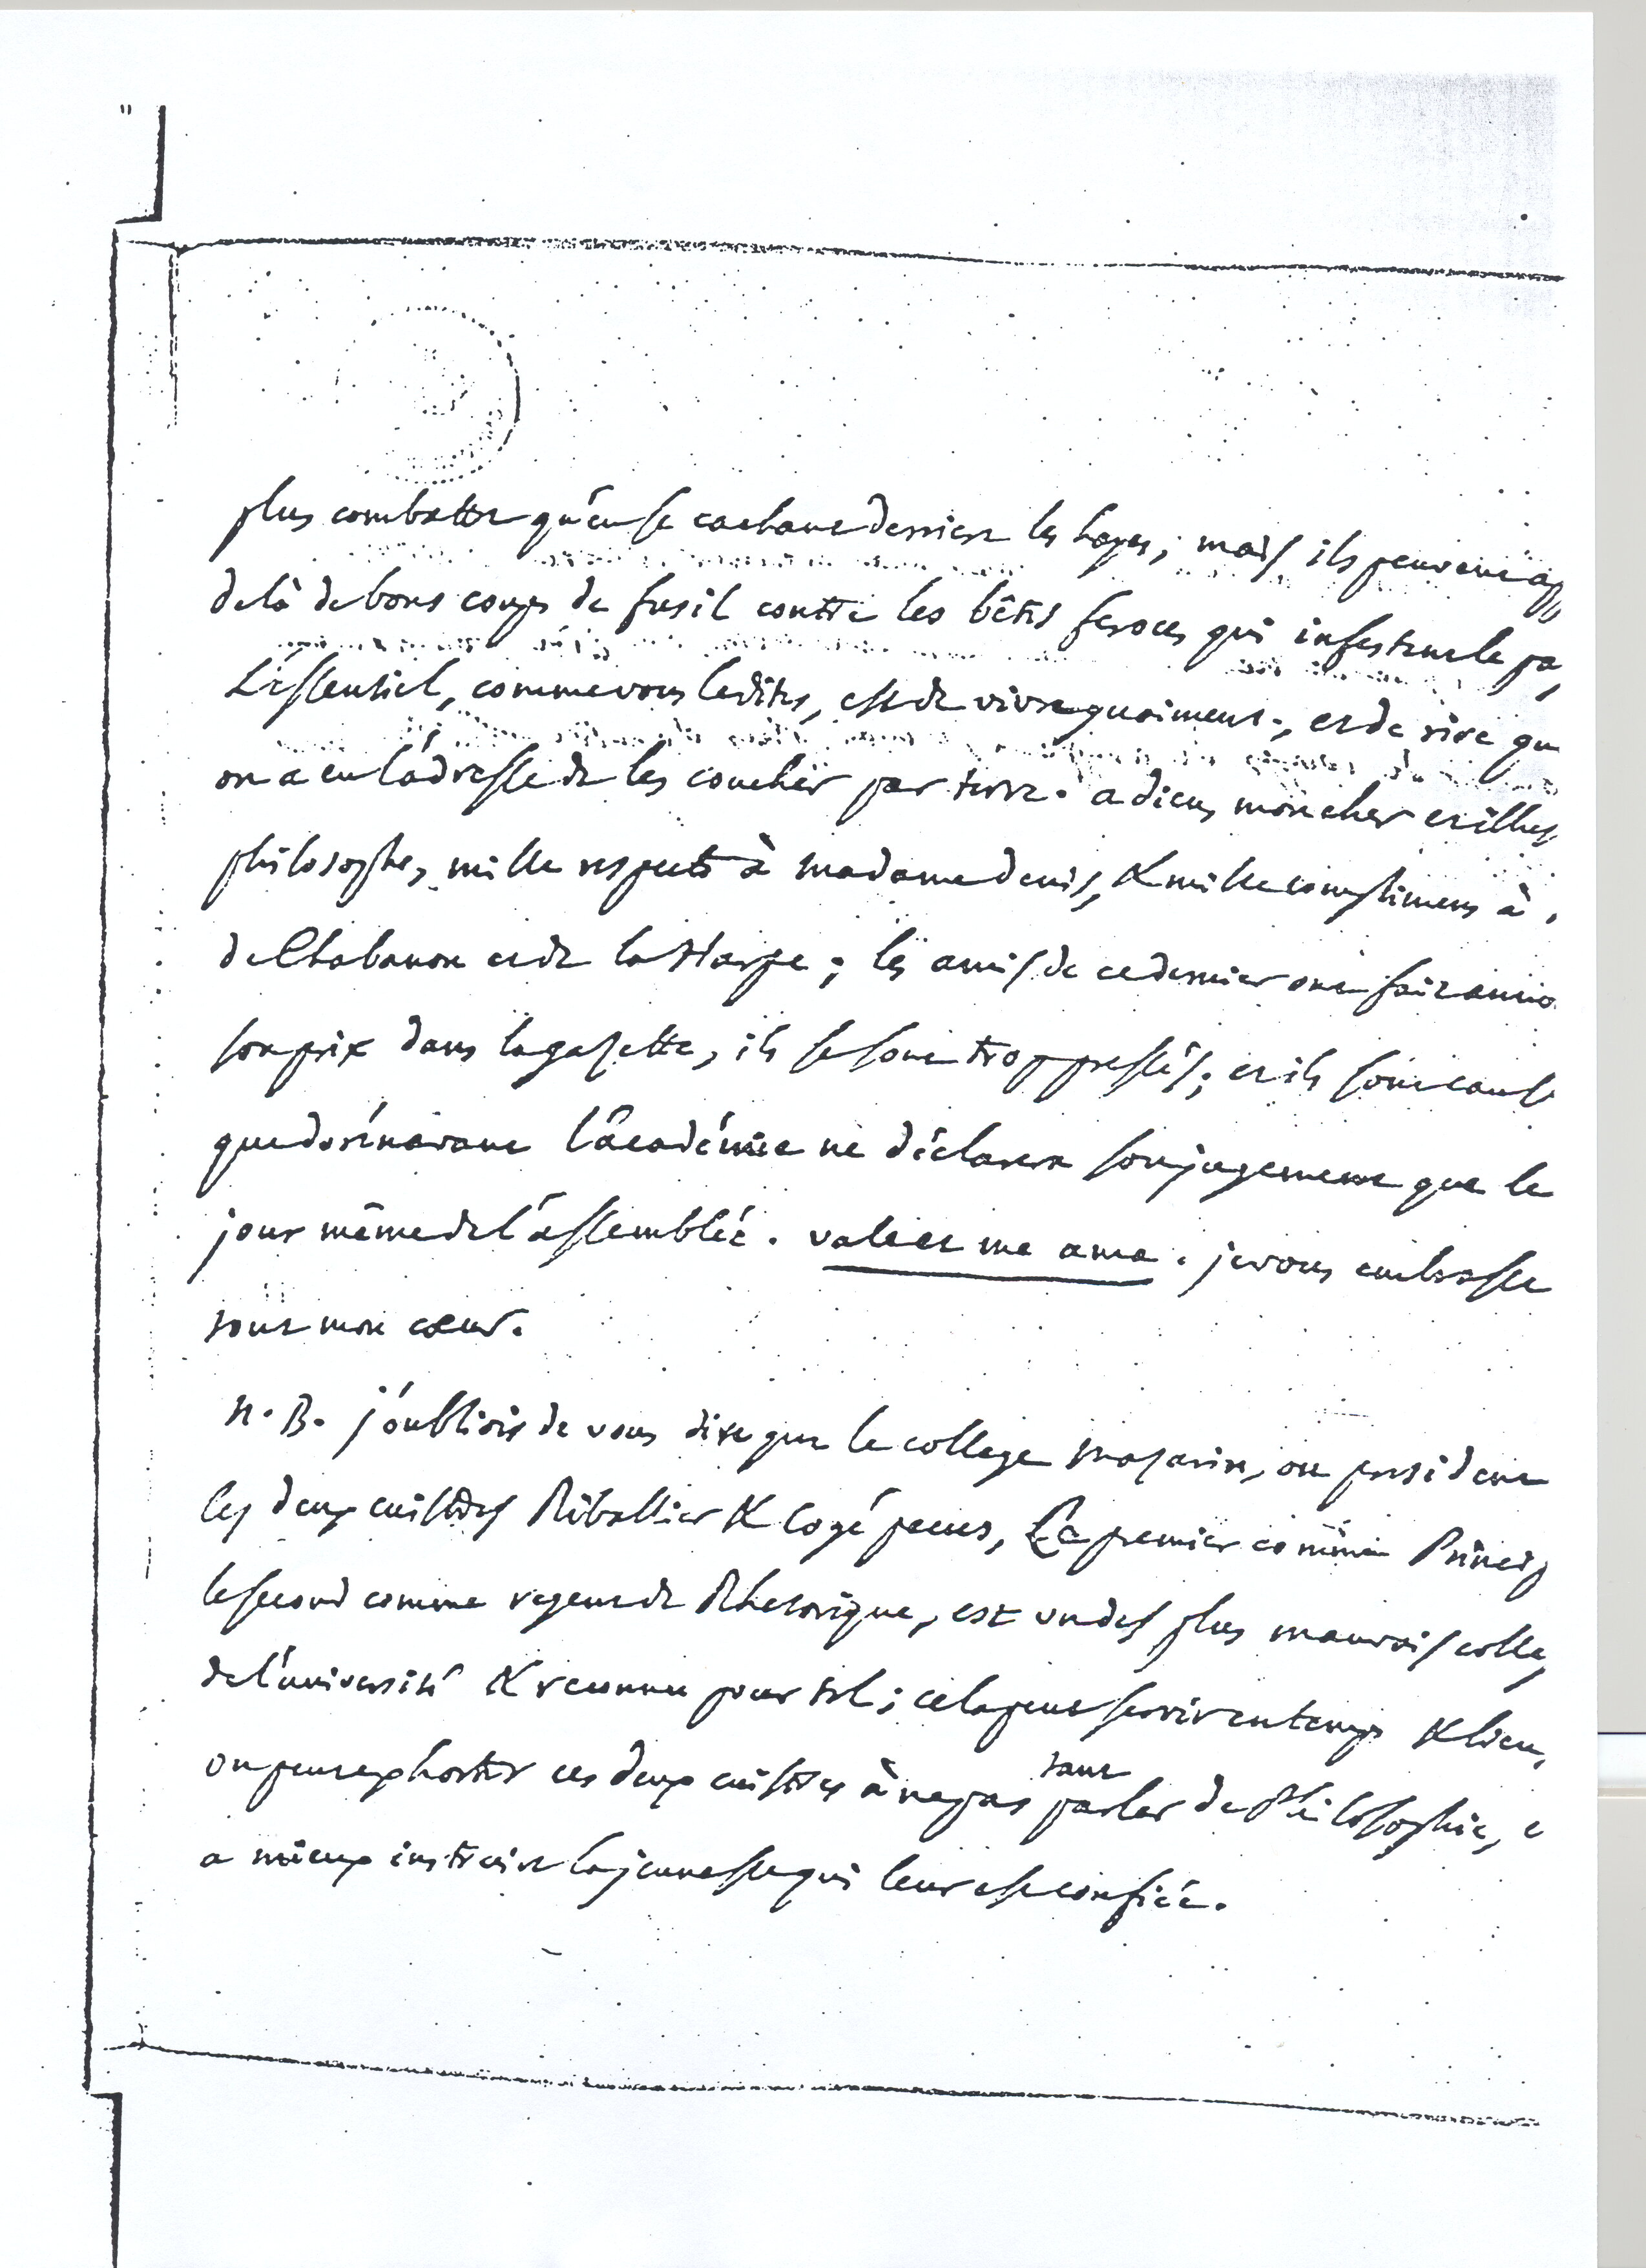 plus combattre qu'en se cachant derriere les hayes; mais ils peuvent ap
delà de bons coups de fusil contre les bêtes feroces qui infestent le pa
L'essentiel, comme vous le dites, est de vivre guaiment; et de rire qu
on a eu l'adresse de les coucher par terre. adieu, mon cher et illus
philosophe, mille respects à madame denis, & mille complimens à
de Chabanon et de la Harpe; les amis de ce dernier ont fait anno
son prix dans la gazette, ils se sont trop pressés; et ils sont cause
que dorénavant l'académie ne déclarera son jugement que le
jour même de l'assemblée. vale et me ama. je vous embrasse
tout mon cœur.
N. B. j'oubliois de vous dire que le college Mazarin, ou president
les deux cuistres Riballier & Cogé pecus, Le premier comme Princip
le second comme regent de Rhetorique, est un des plus mauvais colle
de l'université & reconnu pour tel; cela peut servir en temps & lieu,
on peut exhorter ces deux cuistres à ne pas tant parler de Philosophie, e
a mieux instruire la jeunesse qui leur est confiée.